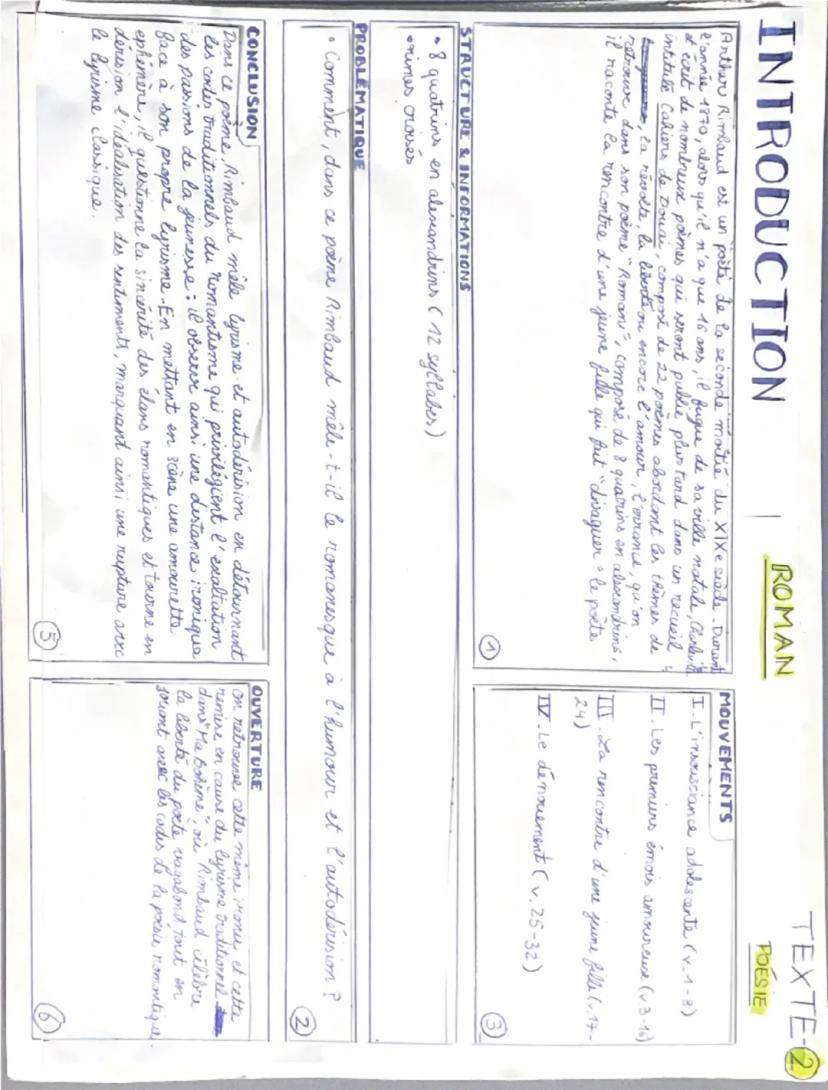 INTRODUCTION | ROMAN TEXTE-2
POÉSIE
Arthur Rimbaud est un poète de la seconde moitié du XIXe siècle. Durant
l'année 1870, alors qu'il n'a que 16 ans, il fugue de sa ville natale,
et écrit de nombreux poèmes qui seront publié plus tard dans un recueil
intitulé Cahiers de Douai, composé de 22 poèmes abordant les thèmes de
la révolte, la liberté ou encore l'amour, l'errance, qu'on
retrouve dans son poème "Roman", composé de 8 quatrins en alexandrins,
il raconte la rencontre d'une jeune fille qui fait "divaguer" le poète
1
MOUVEMENTS
I. L'insouciance adolescente (v.1-8)
II. Les premiers émois amoureux (v.9-16)
III. La rencontre d'une jeune fille (v.17-
24)
IV. Le dénouement (v.25-32)
3
STRUCTURE & INFORMATIONS
• 8 quatrins en alexandrins (12 syllabes)
• rimes croisés
PROBLÉMATIQUE
• Comment, dans ce poème Rimbaud mêle-t-il le romanesque à l'humour et l'autodérision ?
2
CONCLUSION
Dans ce poème, Rimbaud mêle lyrisme et autodérision en détournant
les codes traditionnels du romantisme qui privilégient l'exaltation
des passions de la jeunesse : il observe ainsi une distance ironique
face à son propre lyrisme. En mettant en scène une amourette
ephémère, il questionne la sincérité des élans romantiques et tourne en
dérision l'idéalisation des sentiments, marquant ainsi une rupture avec
le lyrisme classique.
5
OUVERTURE
on retrouve cette même ironie et cette
remise en cause du lyrisme traditionnel
dans "Ma Bohème", où Rimbaud célèbre
la liberté du poète vagabond tout en
jouant avec les codes de la poésie romantique.
6